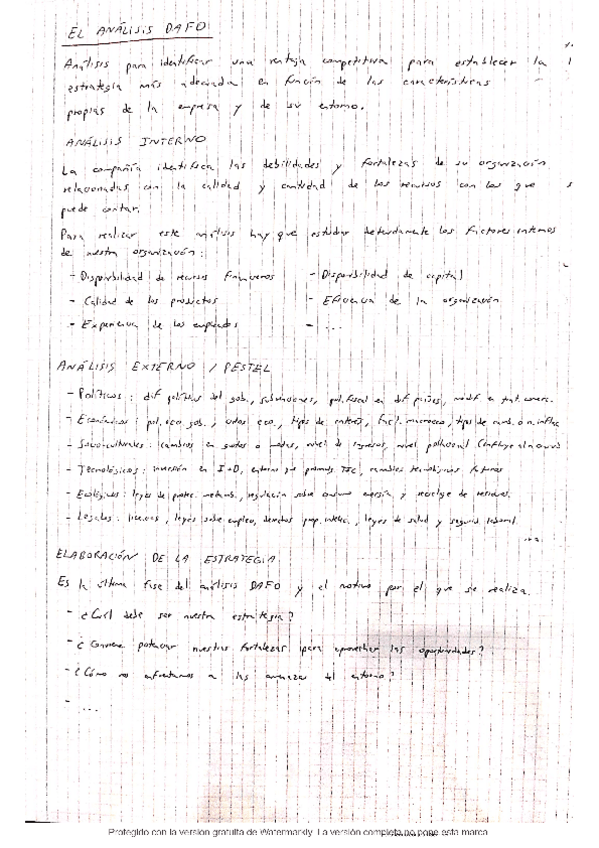 EL ANÁLISIS DAFO
Análisis para identificar una ventaja competitiva para establecer la
estrategia más adecuada en función de las características
propias de la empresa y de su entorno.
ANÁLISIS INTERNO
La compañía identifica las debilidades y fortalezas de su organización
relacionadas con la calidad y cantidad de los recursos con los que
puede contar.
Para realizar este análisis hay que estudiar detenidamente los factores internos
de nuestra organización:
- Disponibilidad de recursos financieros - Disponibilidad de capital
- Calidad de los productos - Eficiencia de la organización
- Experiencia de los empleados - ...
ANÁLISIS EXTERNO / PESTEL
- Políticos: dif políticas del gob., subvenciones, pol. fiscal en dif países, modif en trat. comerc.
- Económicos: pol. eco. gob., ciclos eco., tipos de interés, fact. macroeco., tipos de camb. o n. inflac
- Socio-culturales: cambios en gustos o modas, nivel de ingresos, nivel poblacional
- Tecnológicos: inversión en I+D, entorno que promueve TIC, cambios tecnológicos futuros
- Ecológicos: leyes de protec. medioamb., regulación sobre consumo energía y reciclaje de residuos.
- Legales: licencias, leyes sobre empleo, derechos prop. intelec., leyes de salud y seguridad laboral.
...
ELABORACIÓN DE LA ESTRATEGIA
Es la última fase del análisis DAFO y el motivo por el que se realiza.
- ¿Cuál debe ser nuestra estrategia?
- ¿Conviene potenciar nuestras fortalezas para aprovechar las oportunidades?
- ¿Cómo nos enfrentamos a las amenazas del entorno?
- ....
Protegido con la versión gratuita de Watermarkly. La versión completa no pone esta marca